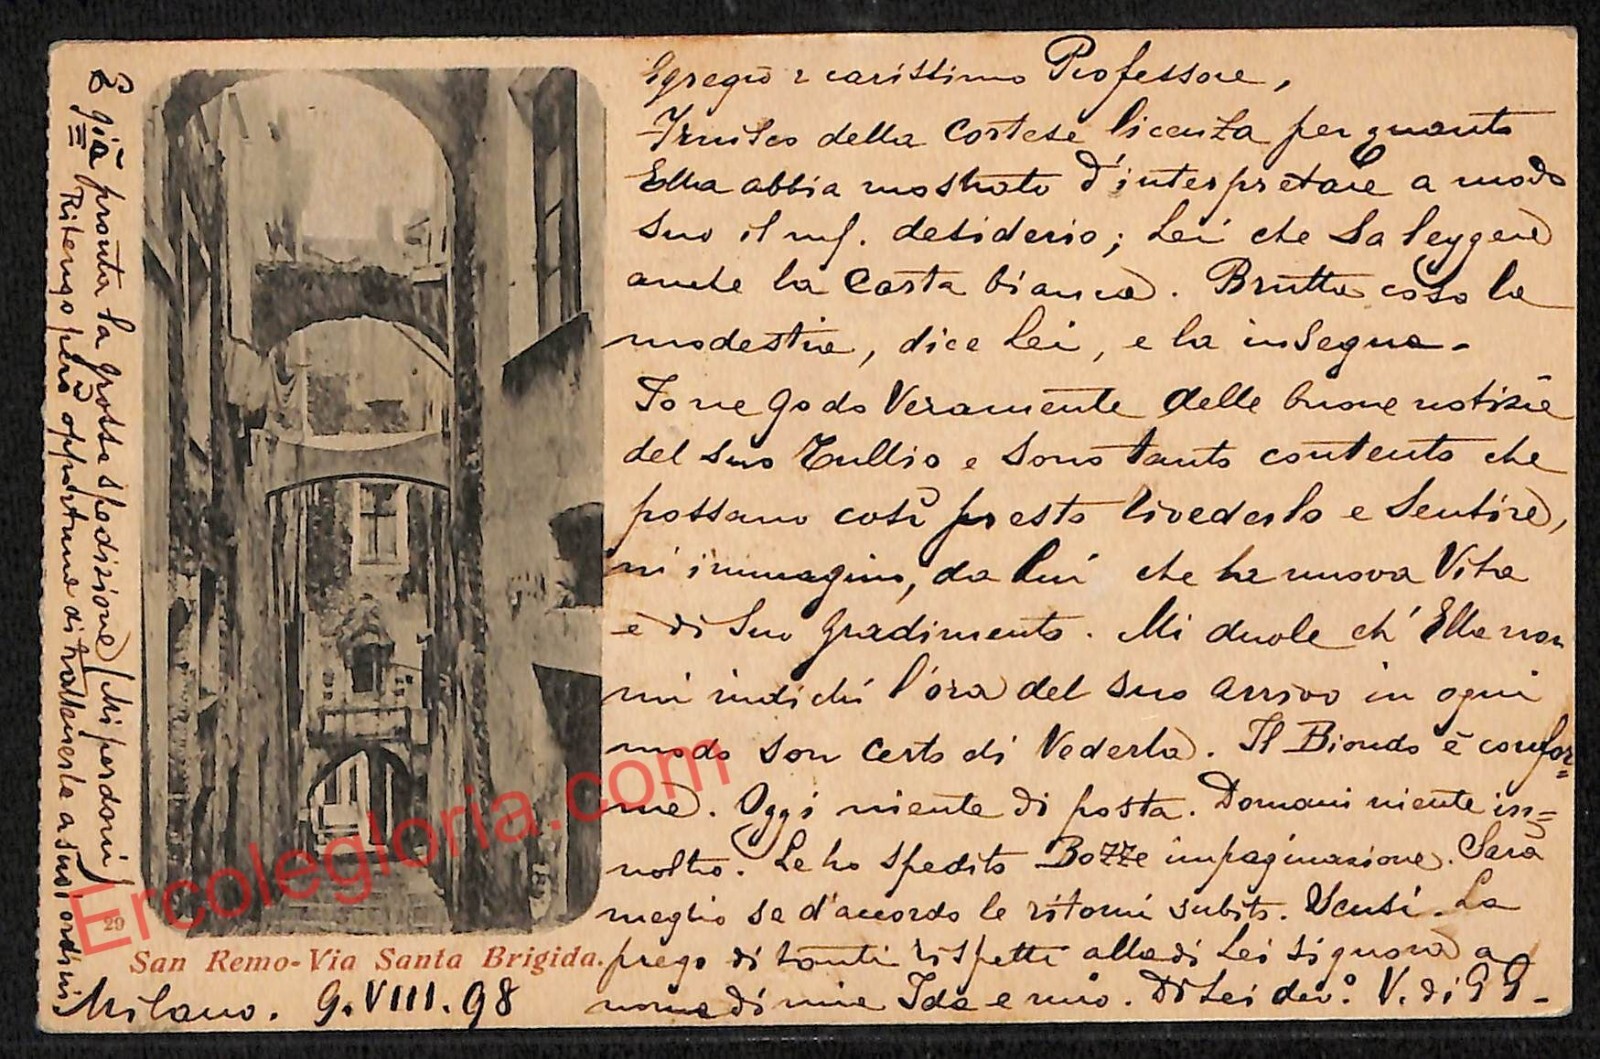 Egregio e carissimo Professore,
Fruisco della cortese licenza per quanto
Ella abbia mostrato d'interpretare a modo
suo il mf. desiderio; Lei che sa leggere
anche la carta bianca. Brutta cosa la
modestia, dice Lei, e la insegna.
Io ne godo veramente delle buone notizie
del suo Tullio e sono tanto contento che
possano così presto rivederlo e sentire,
mi immagino, da lui che la nuova vita
è di suo gradimento. Mi duole ch'Ella non
mi indichi l'ora del suo arrivo in ogni
modo son certo di vederla. Il Biondo è confor=
me. Oggi niente di posta. Domani niente in=
noltro. Le ho spedito Bozze impaginazione. Sarà
meglio se d'accordo le ritorni subito. Scusi. La
prego di tanti rispetti alla di Lei signora a
nome di mia Ida e mio. Di Lei dev.º V. di G G -
È già pronta la grossa spedizione (Mi perdoni)
Ritengo però opportuno di trattenerla a suoi ordini
29
San Remo-Via Santa Brigida.
Milano. 9.VIII.98
Ercolegloria.com